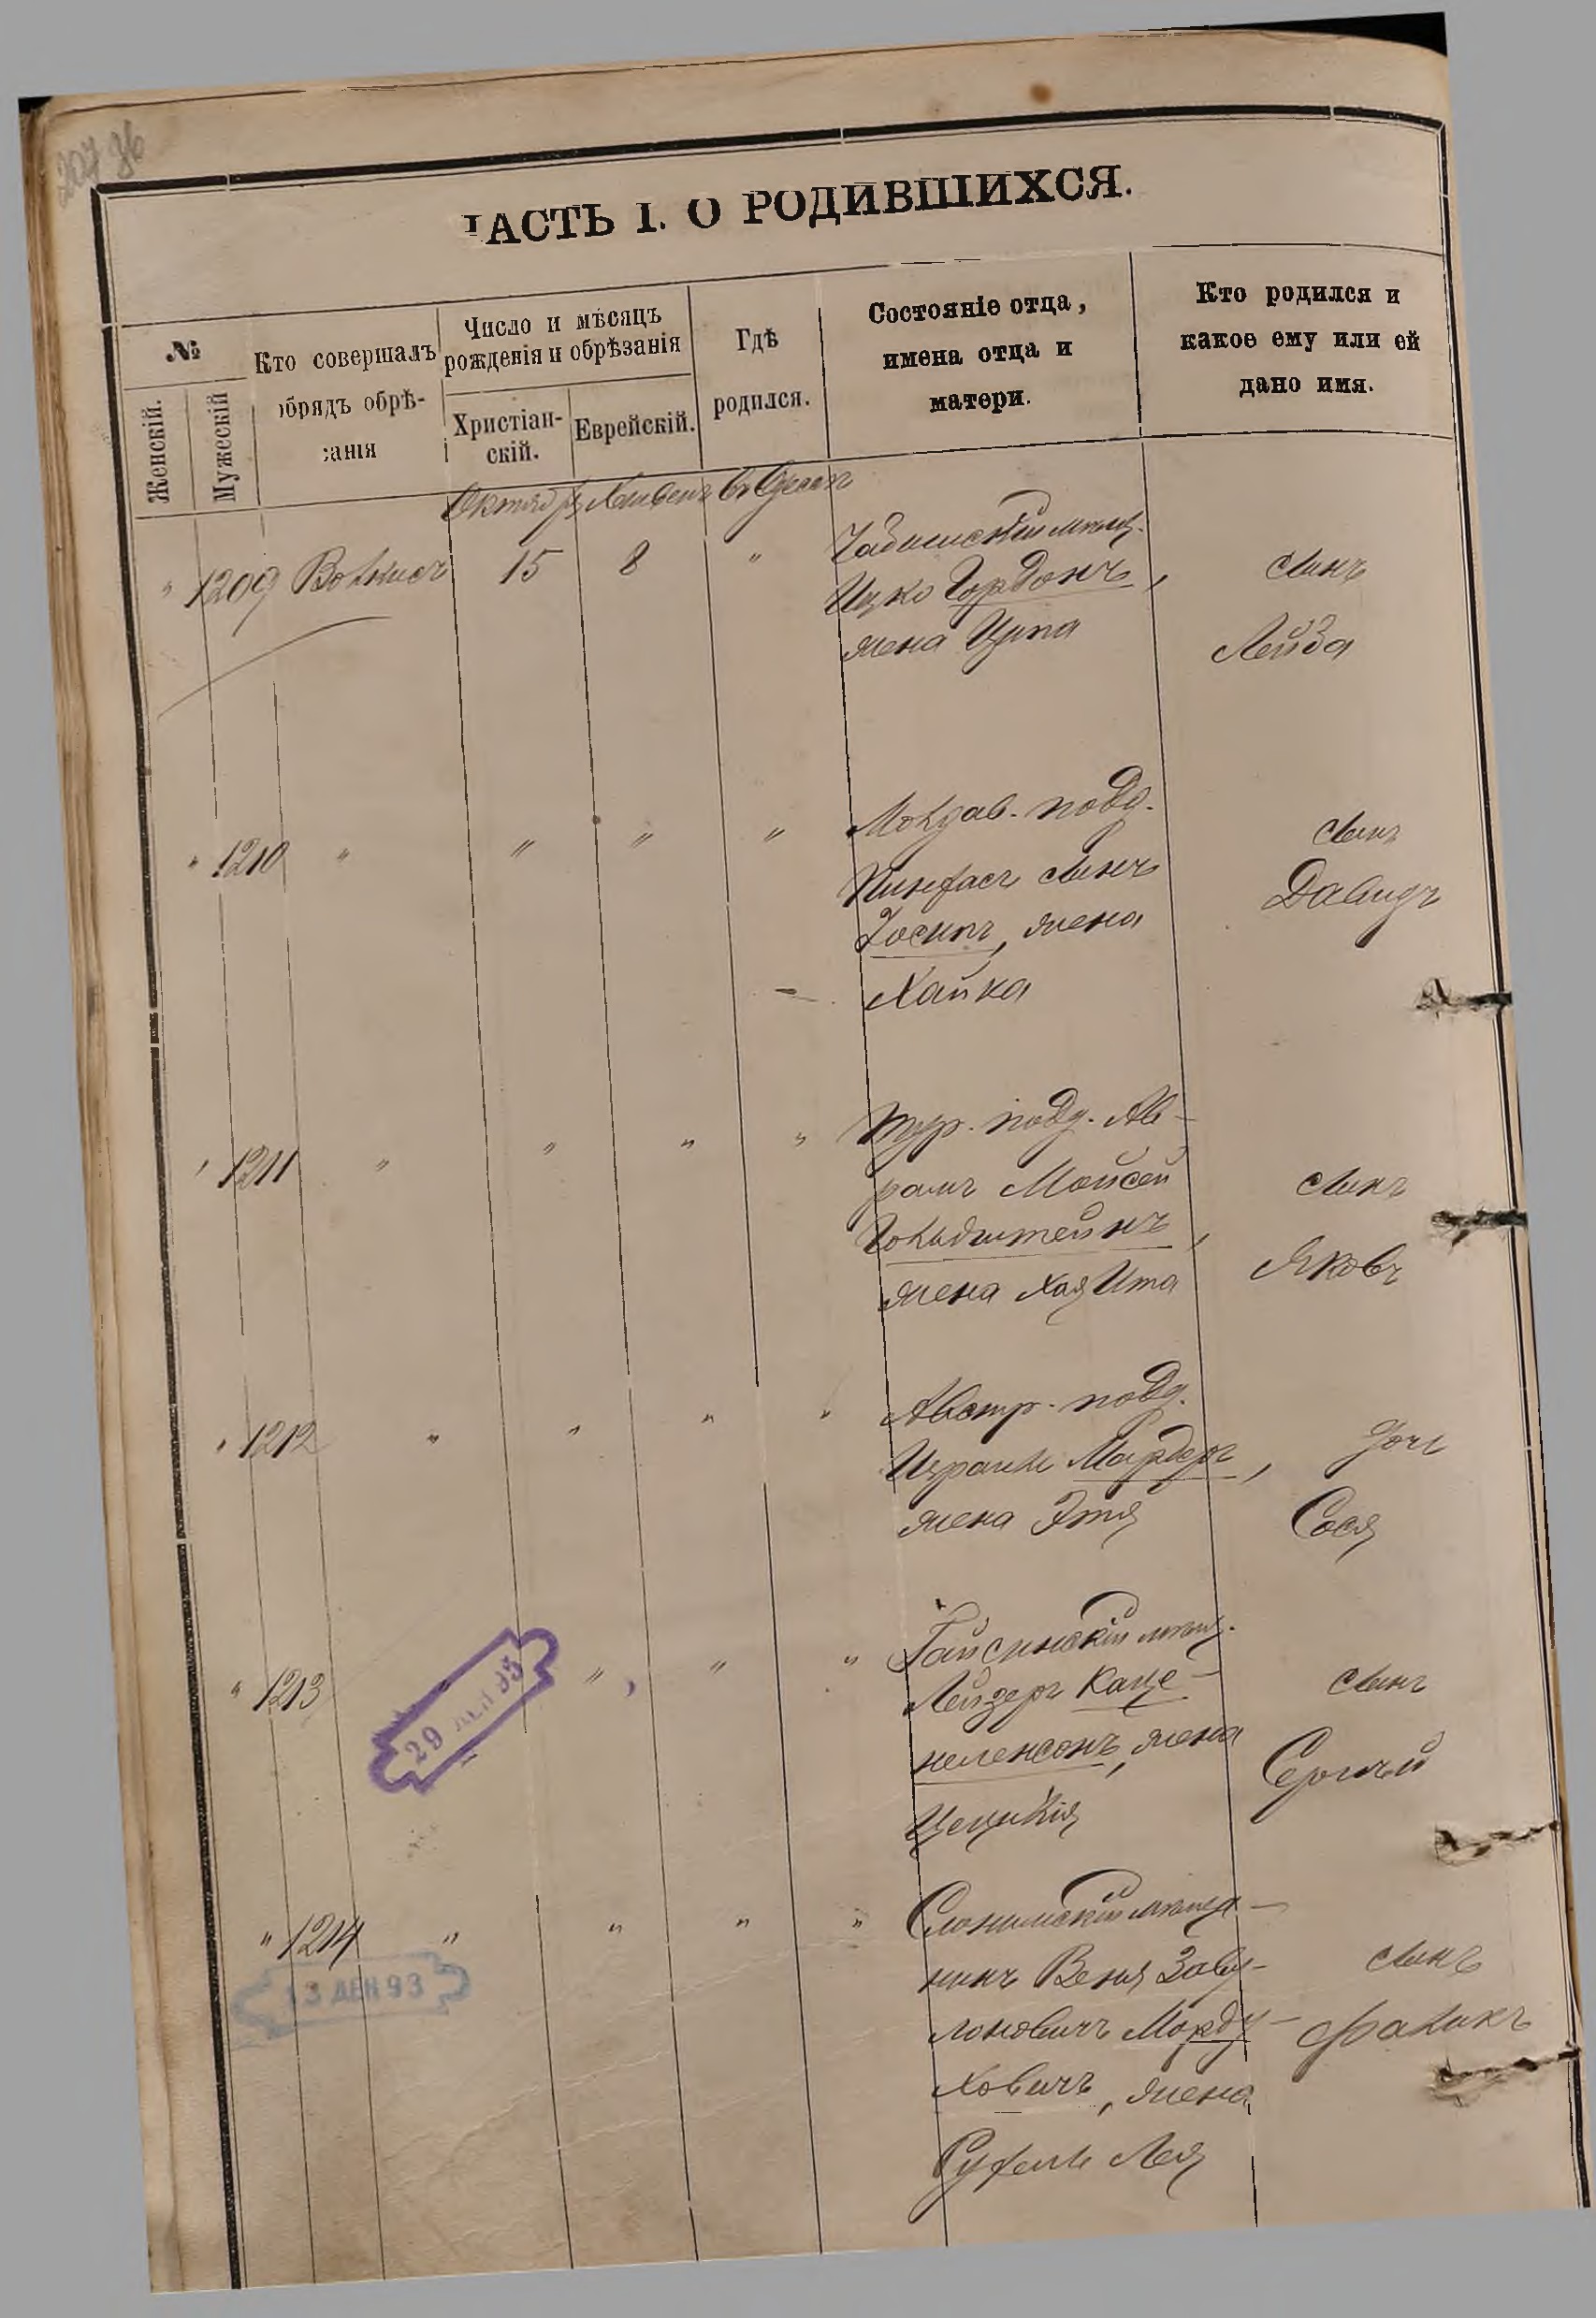 207 86
ЧАСТЬ I. О РОДИВШИХСЯ.
№
Женскій.
Мужескій
Кто совершалъ
обрядъ обрѣ-
занія
Число и мѣсяцъ
рожденія и обрѣзанія
Христіан-
скій.
Еврейскій.
Гдѣ
родился.
Состояніе отца,
имена отца и
матери.
Кто родился и
какое ему или ей
дано имя.
Октября Хешвенъ въ Одессѣ
" 1209 15 8 "
мѣщ.
Ицко Гордонъ,
жена Ципа
сынъ
Лейба
" 1210 " " " "
Молдав.подд.
Пинхасъ сынъ
Іосипъ, жена
Хайка
сынъ
Давидъ
" 1211 " " " "
Тур. подд. Ав-
рамъ Мойсей
Гольдштейнъ,
жена Хая Ита
сынъ
Яковъ
" 1212 " " " "
Австр. подд.
Израиль Мардеръ,
жена Этя
дочь
Сося
" 1213 " " "
29 93
Гайсинскій мѣщ.
Лейзеръ Каце-
неленсонъ, жена
Цецилія
сынъ
Сергѣй
" 1214 " " " "
13 ДЕК 93
Слонимскій мѣща-
нинъ Веня Заву-
лоновичъ Морду-
ховичъ, жена
Руфель Лея
сынъ
Фаликъ